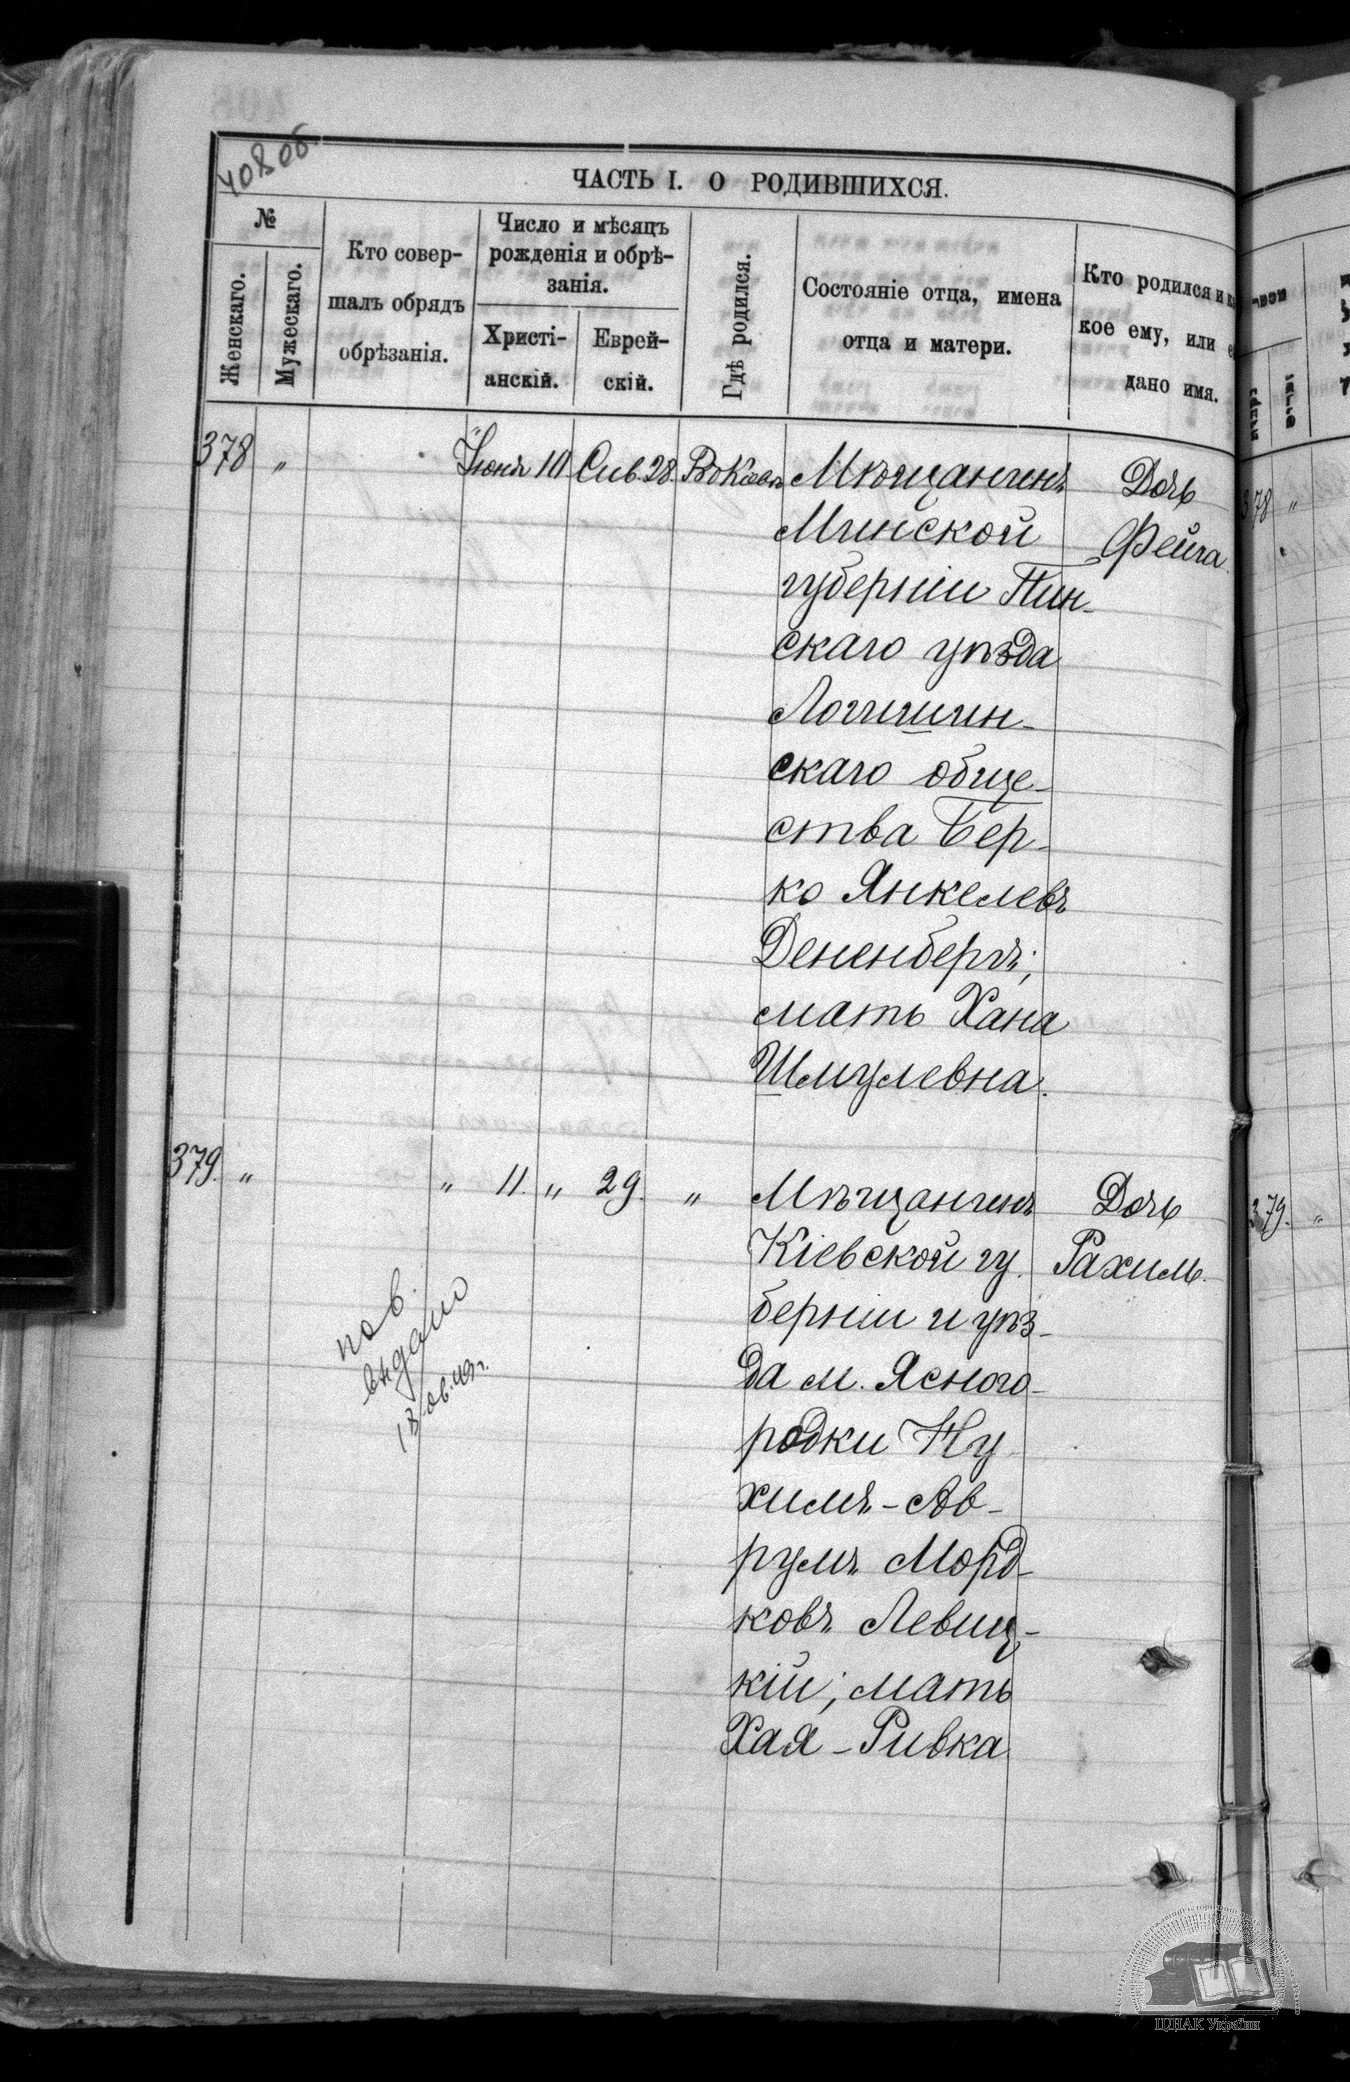 408 об
ЧАСТЬ I. О РОДИВШИХСЯ.
№
Женскаго.
Мужескаго.
Кто совер-
шалъ обрядъ
обрѣзанія.
Число и мѣсяцъ
рожденія и обрѣ-
занія.
Христі-
анскій.
Еврей-
скій.
Гдѣ родился.
Состояніе отца, имена
отца и матери.
Кто родился и ка
кое ему, или е
дано имя.
378 " Іюня 10 Сив. 28. Въ Кіевѣ Мѣщанинъ Дочь
Минской Фейга.
губерніи Пин-
скаго уѣзда
Логишин-
скаго обще-
ства Бер-
ко Янкелевъ
Дененбергъ;
мать Хана
Шмулевна.
379. " " 11. " 29. " Мѣщанинъ Дочь
Кіевской гу- Рахиль.
берніи и уѣз-
да м. Ясного-
родки Ну-
химъ-Ав-
румъ Морд-
ковъ Левиц-
кій; мать
Хая-Ривка
пов.
видано
378 "
379. "
ЦДІАК України